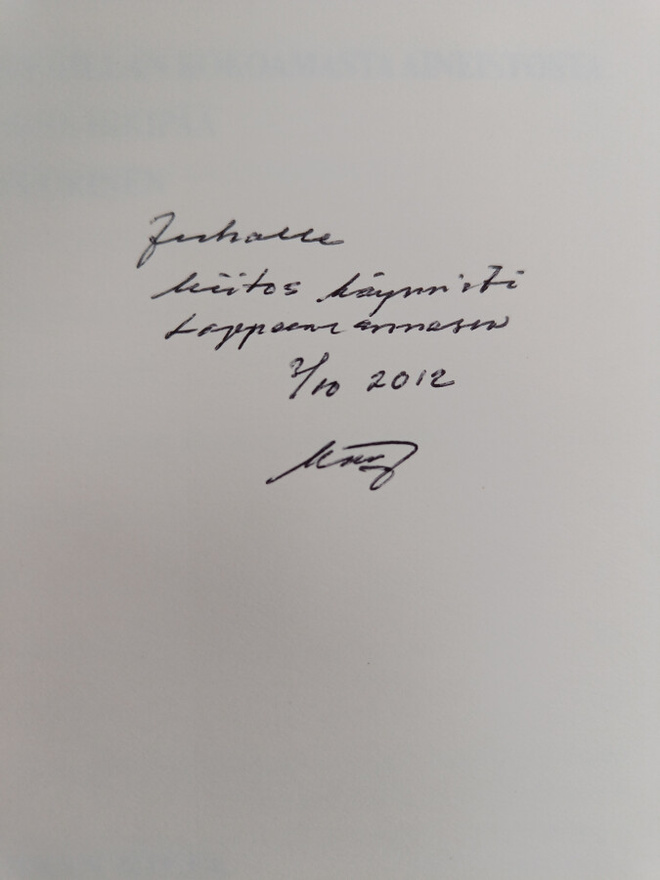 Juhalle
kiitos käynnisti
Lappeenrannassa
3/10 2012